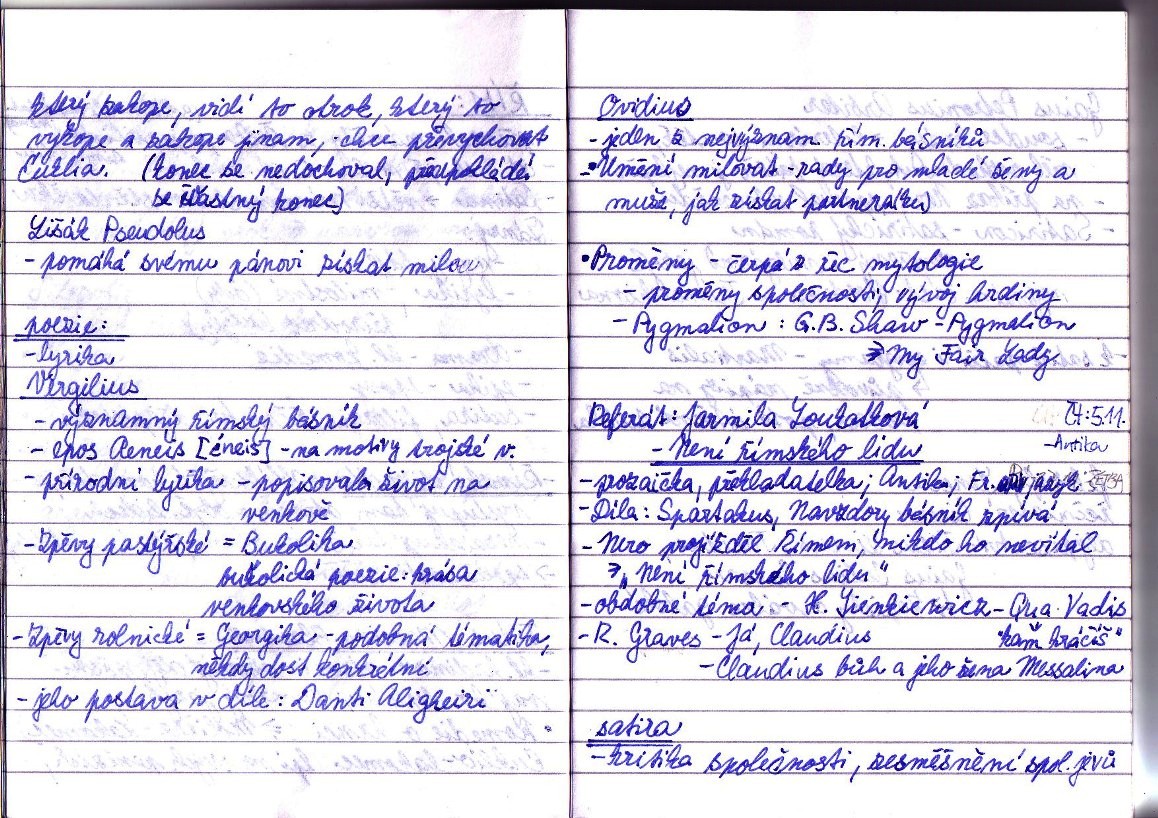 který zakope, vidí to otrok, který to
vykope a zakope jinam, chce převychovat
Euklia. (konec se nedochoval, předpokládá
se šťastný konec)
Lišák Pseudolus
- pomáhá svému pánovi získat milou
poezie:
- lyrika
Virgilius
- významný římský básník
- epos Aeneis [éneis] - na motivy trojské v.
- přírodní lyrika - popisovala život na
venkově
- Zpěvy pastýřské = Bukolika
bukolická poezie: krása
venkovského života
- Zpěvy rolnické = Georgika - podobná tématika,
někdy dost konkrétní
- jeho postava v díle: Danti Aligheiri
Ovidius
- jeden z nejvýznam. řím. básníků
- Umění milovat - rady pro mladé ženy a
muže, jak získat partnera(ku)
• Proměny - čerpá z řec mytologie
- proměny společnosti, vývoj hrdiny
- Pygmalion : G.B. Shaw - Pygmalion
⇒ My Fair Lady
Referát: Jarmila Loukotková Čt: 5.11.
- Není římského lidu - Antika
- prozaička, překladatelka; Antika; Fr. jazyk
- Díla: Spartakus, Navzdory básník zpívá
- Nero projížděl Římem, nikdo ho nevítal
⇒ "Není římského lidu"
- obdobné téma - H. Sienkiewicz - Qua Vadis
- R. Graves - Já, Claudius "kam kráčíš"
- Claudius bůh a jeho žena Messalina
satira
- kritika společnosti, zesměšnění spol. jevů